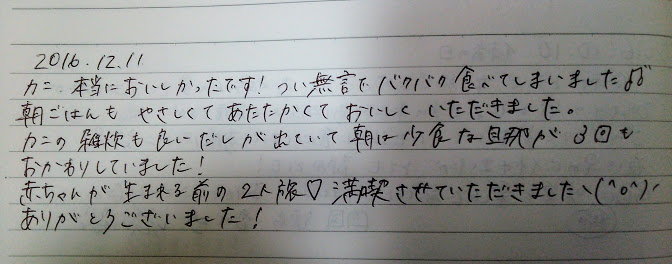 2016.12.11
カニ、本当においしかったです！つい無言でバクバク食べてしまいました♫
朝ごはんも やさしくてあたたかくて おいしく いただきました。
カニの雑炊も良いだしが出ていて 朝は少食な旦那が 3回も
おかわりしていました！
赤ちゃんが 生まれる前の 2人旅♡ 満喫させていただきましたヽ(^o^)ノ
ありがとうございました！